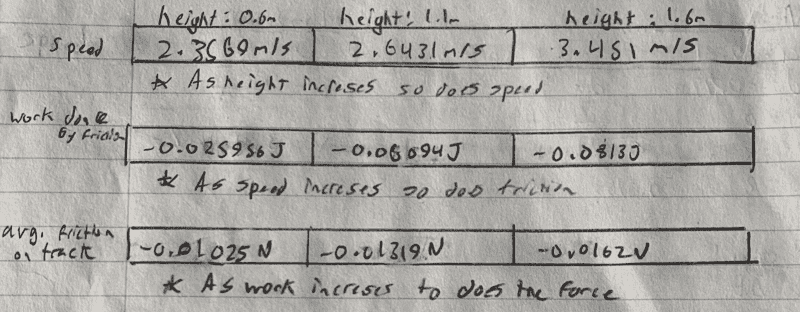 height: 0.6m height: 1.1m height: 1.6m
speed 2.3569m/s 2.6431m/s 3.451 m/s
* As height increses so does speed
work done
by friction -0.025956J -0.06094J -0.0813J
* As speed increses so does friction
avg. friction
on track -0.01025N -0.01319N -0.0162N
* As work increses to does the force